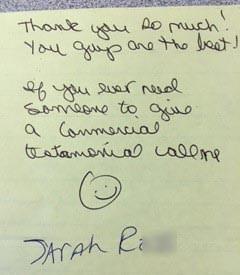 Thank you so much!
You guys are the best!
If you ever need
someone to give
a commercial
testamonial call me
Sarah R